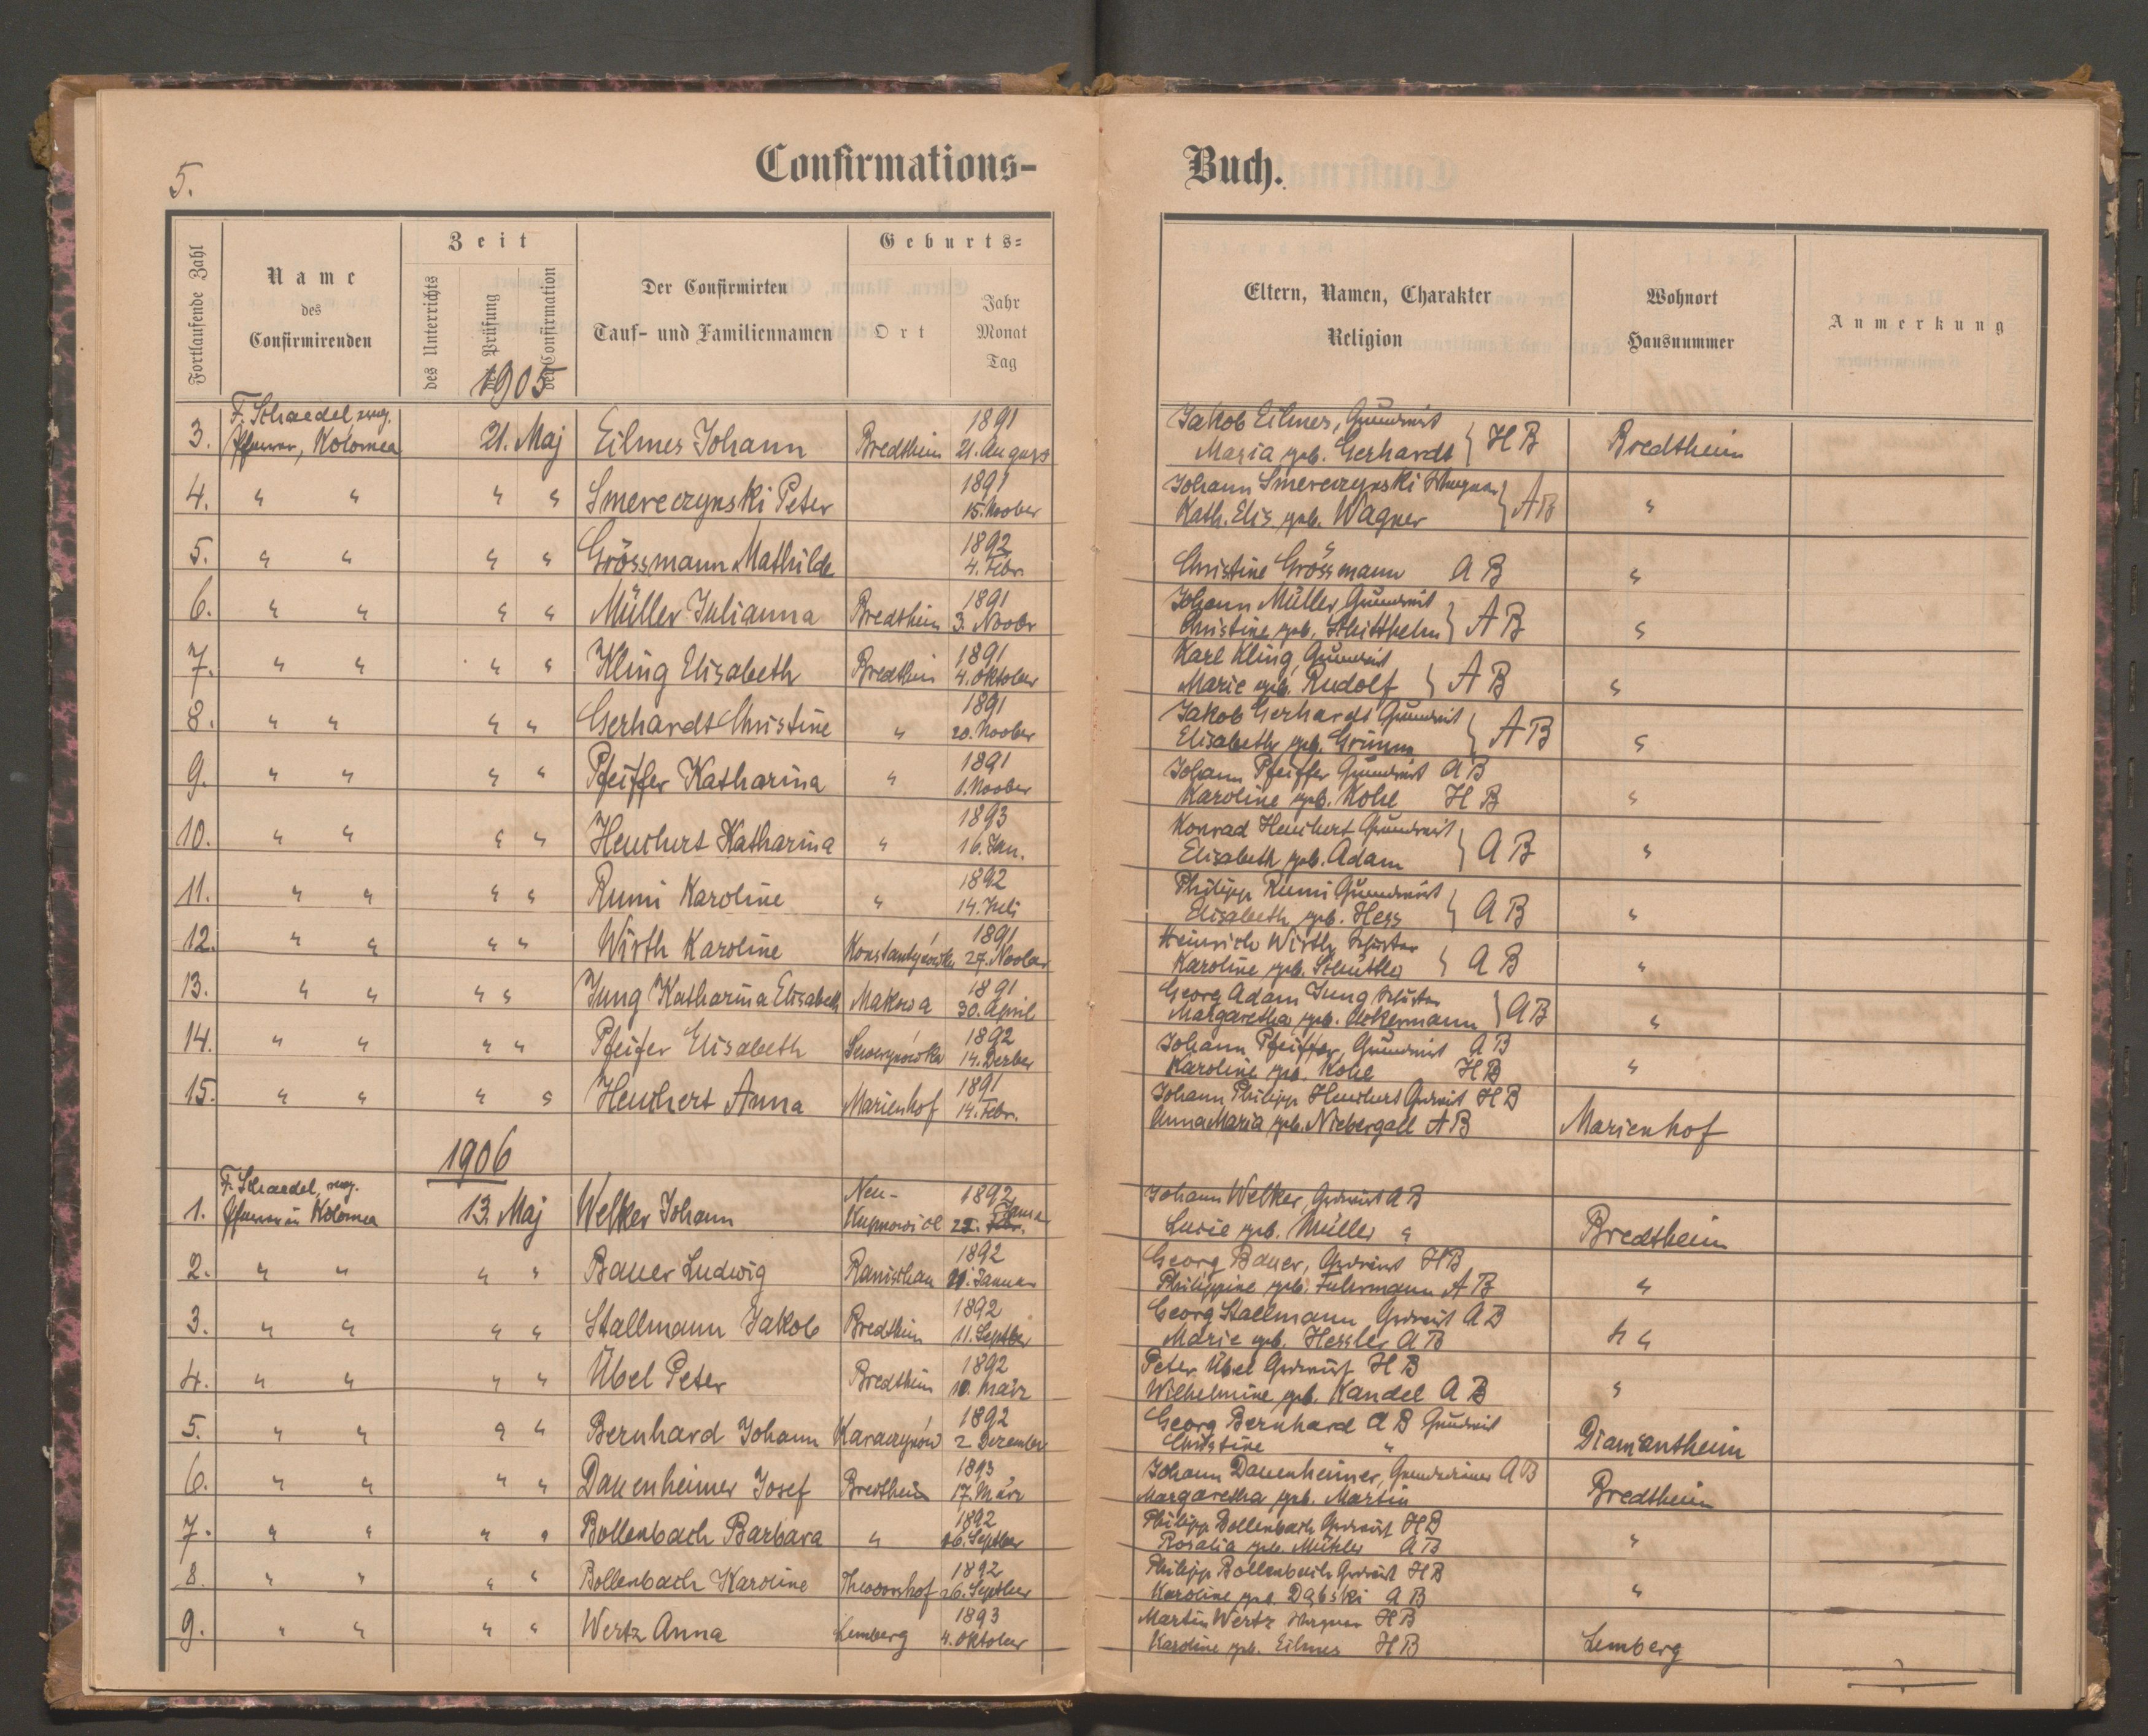 5.
Confirmations-
Buch.
Fortlaufende Zahl
Name
des
Confirmirenden
Zeit
des Unterrichts
der Prüfung
der Confirmation
Der Confirmirten
Tauf- und Familiennamen
Geburts=
Ort
Jahr
Monat
Tag
Eltern, Namen, Charakter
Religion
Wohnort
Hausnummer
Anmerkung
1905
3. F. Schaedel, evang. Pfarrer, Kolomea 21. Maj Eilmes Johann Bredtheim 1891 21. August Jakob Eilmes, Grundwirt
Maria geb. Gerhardt } HB Bredtheim
4. " " " " Smereczynski Peter 1891 15. Novber Johann Smereczynski
Kath. Elis geb. Wagner } AB "
5. " " " " Grössmann Mathilde 1892 4. Febr. Christine Grössmann AB "
6. " " " " Müller Julianna Bredtheim 1891 3. Novbr Johann Müller, Grundwirt
Christine geb. } AB "
7. " " " " Kling Elisabeth Bredtheim 1891 4. Oktober Karl Kling, Grundwirt
Marie geb. Rudolf } AB "
8. " " " " Gerhardt Christine " 1891 20. Novber Jakob Gerhardt Grundwirt
Elisabeth geb. Grimm } AB "
9. " " " " Pfeiffer Katharina " 1891 1. Novber Johann Pfeiffer Grundwirt AB
Karoline geb. Kohl HB "
10. " " " " Heuchert Katharina " 1893 16. Jan. Konrad Heuchert Grundwirt
Elisabeth geb. Adam } AB "
11. " " " " Rumi Karoline " 1892 14. Juli Philipp Rumi Grundwirt
Elisabeth geb. Hess } AB "
12. " " " " Wirth Karoline Konstantynówka 1891 27. Novber Heinrich Wirth, Schuster
Karoline geb. } AB "
13. " " " " Jung Katharina Elisabeth Makowa 1891 30. April Georg Adam Jung Schuster
Margaretha geb. Ackermann } AB "
14. " " " " Pfeifer Elisabeth Sewerynówka 1892 14. Dezber Johann Pfeiffer, Grundwirt AB
Karoline geb. Kohl HB "
15. " " " " Heuchert Anna Marienhof 1891 14. Febr. Johann Philipp Heuchert Grdwirt HB
Anna Maria geb. Niebergall AB Marienhof
1906
1. F. Schaedel, evang. Pfarrer in Kolomea 13. Maj Welker Johann Neu-Kupnowice 1892 22. Febr. Januar Johann Welker, Grdwirt AB
Luzie geb. Müller " Bredtheim
2. " " " " Bauer Ludwig Ranischau 1892 21. Januar Georg Bauer, Grdwirt HB
Philippine geb. Fuhrmann AB "
3. " " " " Stallmann Jakob Bredtheim 1892 11. Septber Georg Stallmann Grdwirt AB
Marie geb. Hessler AB " "
4. " " " " Übel Peter Bredtheim 1892 10. März Peter Übel Grdwirt HB
Wilhelmine geb. Kandel AB "
5. " " " " Bernhard Johann Karaczynów 1892 2 Dezember Georg Bernhard AB Grundwirt
Christine " Diamantheim
6. " " " " Dauenheimer Josef Bredtheim 1893 17. März Johann Dauenheimer, AB
Margaretha geb. Martin Bredtheim
7. " " " " Bollenbach Barbara " 1892 16. Septber Philipp Bollenbach Grdwirt HB
Rosalia geb. Mühler AB "
8. " " " " Bollenbach Karoline Theodorshof 1892 26. Septber Philipp Bollenbach Grdwirt HB
Karoline geb. Dąbski AB "
9. " " " " Wertz Anna Lemberg 1893 4. Oktober Martin Wertz HB
Karoline geb. Eilmes HB Lemberg